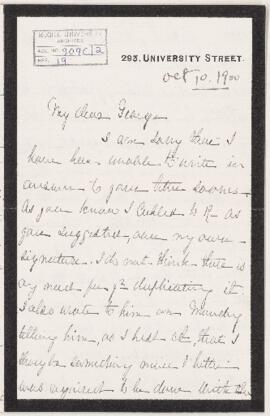 McGILL UNIVERSITY
ARCHIVES
ACC. NO. 909C/2
REF. 19
293, UNIVERSITY STREET.
Oct 10. 1900
My dear George
I am sorry that I
have been unable to write in
answer to your letter sooner.
As you know I cabled to R. as
you suggested, over my own
signature. I do not think there is
any need for duplicating it.
I also wrote to him on Monday
telling him, as I had, that I
thought something more
was required to be done with the